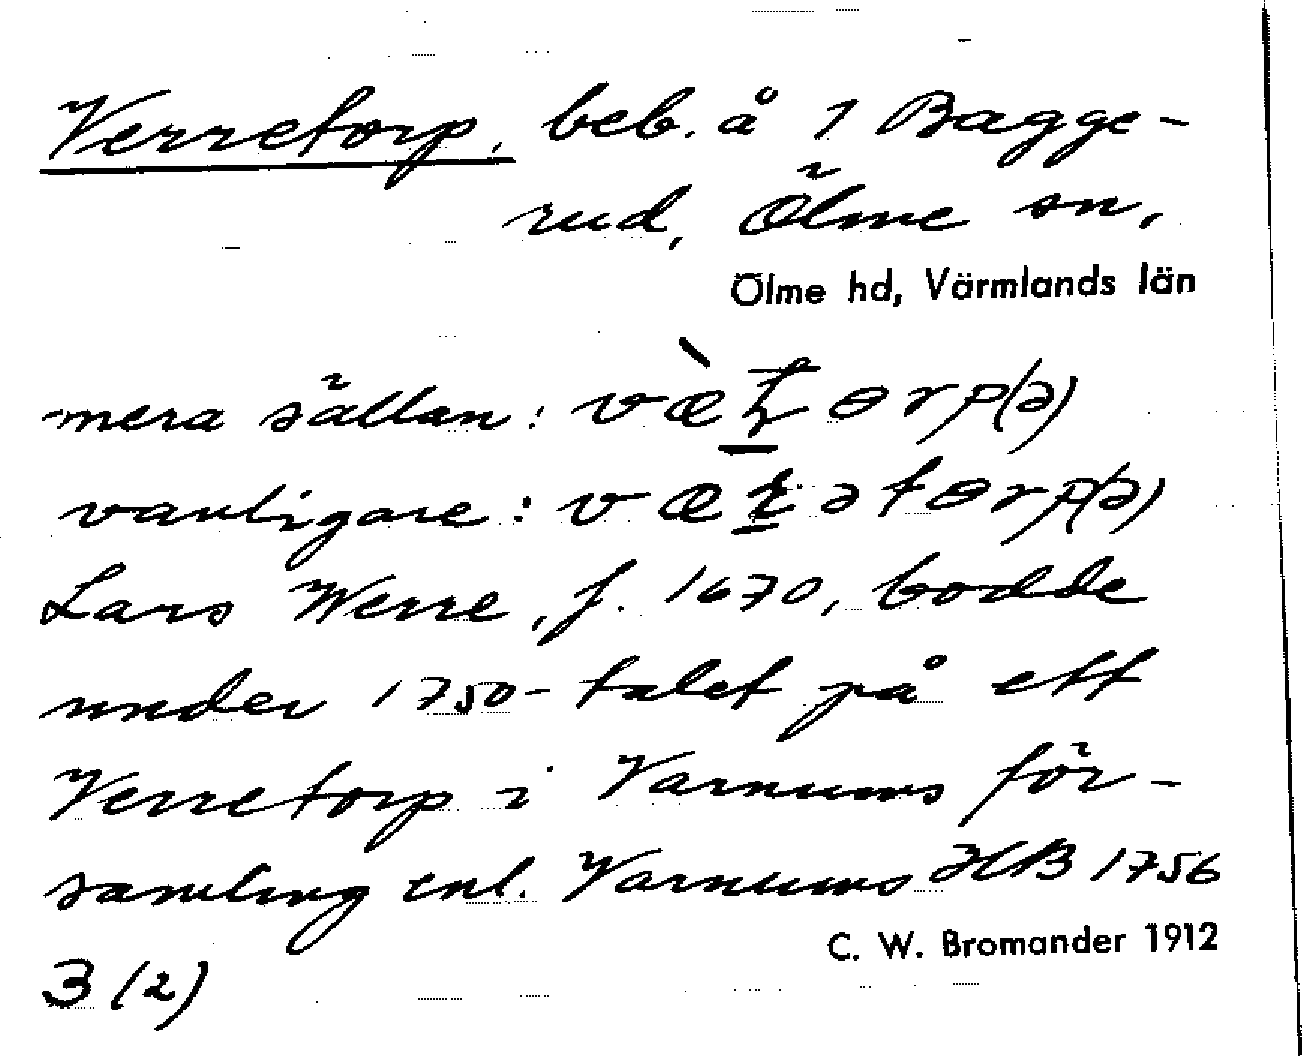 Verretorp, beb. å 1 Bagge-
rud, Ölme sn,
Ölme hd, Värmlands län
mera sällan:
vanligare:
Lars Werre, f. 1670, bodde
under 1750-talet på ett
Verretorp i Varnums för-
samling enl. Varnums HB 1756
C. W. Bromander 1912
3 (2)